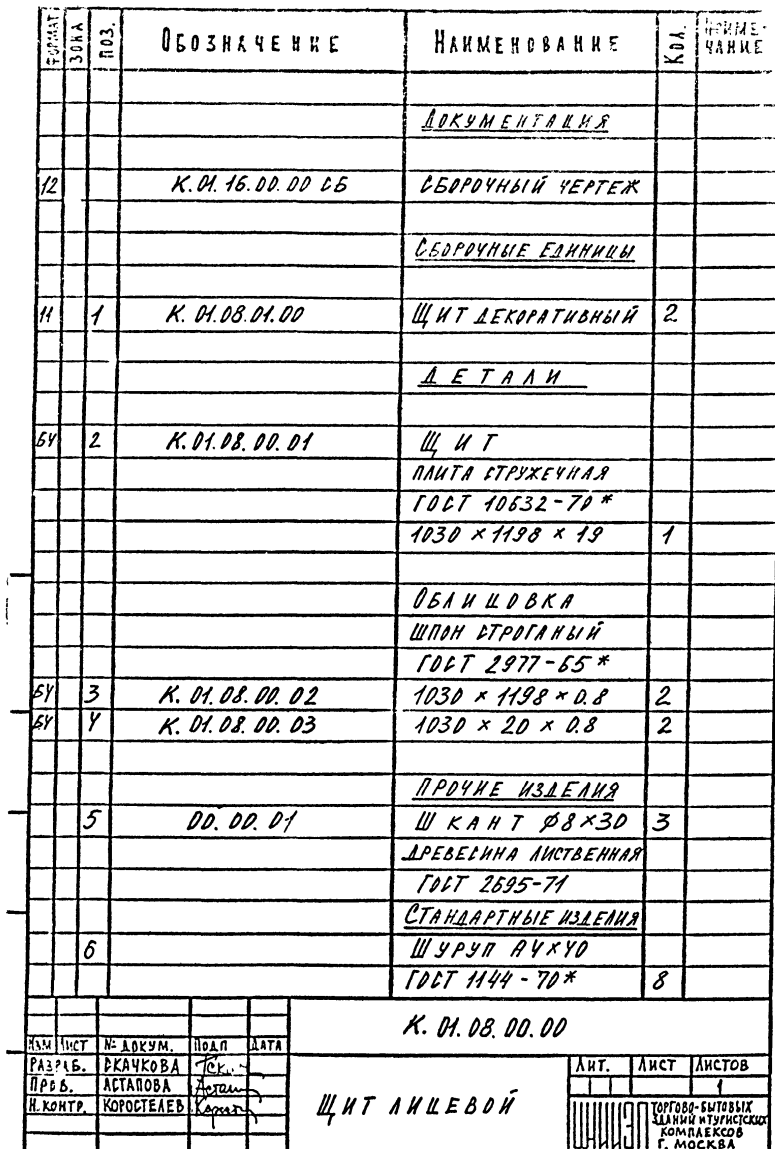 ФОРМАТ ЗОНА ПОЗ. ОБОЗНАЧЕНИЕ НАИМЕНОВАНИЕ КОЛ. ПРИМЕ-
ЧАНИЕ
ДОКУМЕНТАЦИЯ
12 К.01.16.00.00 СБ СБОРОЧНЫЙ ЧЕРТЕЖ
СБОРОЧНЫЕ ЕДИНИЦЫ
11 1 К.01.08.01.00 ЩИТ ДЕКОРАТИВНЫЙ 2
ДЕТАЛИ
БЧ 2 К.01.08.00.01 ЩИТ
ПЛИТА СТРУЖЕЧНАЯ
ГОСТ 10632-70*
1030 × 1198 × 19 1
ОБЛИЦОВКА
ШПОН СТРОГАНЫЙ
ГОСТ 2977-65*
БЧ 3 К.01.08.00.02 1030 × 1198 × 0.8 2
БЧ 4 К.01.08.00.03 1030 × 20 × 0.8 2
ПРОЧИЕ ИЗДЕЛИЯ
5 00.00.01 ШКАНТ Ø8×30 3
ДРЕВЕСИНА ЛИСТВЕННАЯ
ГОСТ 2695-71
СТАНДАРТНЫЕ ИЗДЕЛИЯ
6 ШУРУП А4×40
ГОСТ 1144-70* 8
К.01.08.00.00
ИЗМ ЛИСТ № ДОКУМ. ПОДП ДАТА
РАЗРАБ. СКАЧКОВА
ПРОВ. АСТАПОВА
Н.КОНТР. КОРОСТЕЛЕВ
ЩИТ ЛИЦЕВОЙ
ЛИТ. ЛИСТ ЛИСТОВ
1
ЦНИИЭП ТОРГОВО-БЫТОВЫХ
ЗДАНИЙ И ТУРИСТСКИХ
КОМПЛЕКСОВ
Г. МОСКВА